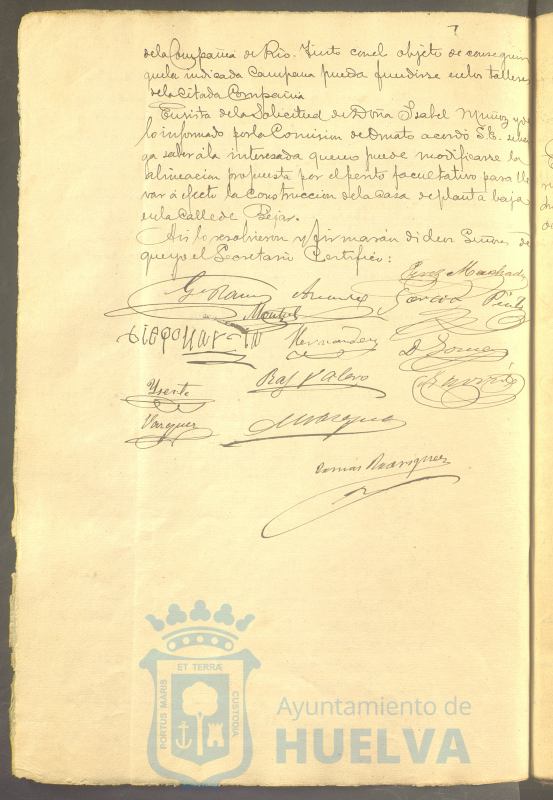 7
de la Compañia de Rio-Tinto con el objeto de conseguir
que la indicada Campana pueda fundirse en los talleres
de la citada Compañia
En vista de la Solicitud de Doña Isabel Muñoz y de
lo informado por la Comision de Ornato acordó S.E. se ha
ga saber á la interesada que no puede modificarse la
alineacion propuesta por el perito facultativo para lle
var á efecto la Construccion de la casa de planta baja
en la Calle de Bejar.
Asi lo resolvieron y firmarán dichos Señores de
que yo el Secretario Certifico:
Perez Machado
Garcia Pinto
Montiel
Hernandez
D. Gomez
Raf Valero
Vazquez
Marquez
Tomas Dominguez
PORTUS MARIS
ET TERRÆ
CUSTODIA
Ayuntamiento de
HUELVA